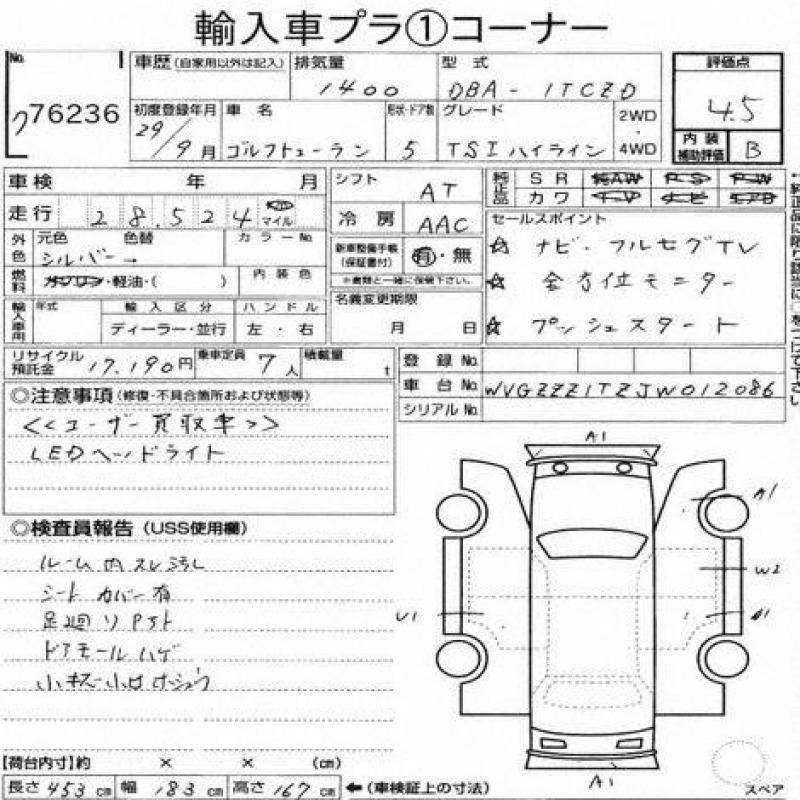 輸入車プラ①コーナー
No. ク76236
車歴 (自家用以外は記入) 排気量 1400 型式 DBA - 1TCZD 評価点 4.5
初度登録年月 29/9月 車名 ゴルフトゥーラン 形状・ドア数 5 グレード TSIハイライン 2WD・4WD 内装補助評価 B
車検 年 月 シフト AT 純正品 SR 純AW PS PW
走行 28,524 マイル 冷房 AAC カワ ナビ
外色 元色 色替 シルバー→ カラーNo. 新車整備手帳(保証書付) 有・無 セールスポイント
☆ ナビ・フルセグTV
燃料 ガソリン・軽油・( ) 内装色 ※書類と一緒に保管下さい。
☆ 全方位モニター
輸入車用 年式 輸入区分 ディーラー・並行 ハンドル 左・右 名義変更期限 月 日
☆ プッシュスタート
リサイクル預託金 17,190円 乗車定員 7人 積載量 t 登録No.
車台No. WVGZZZ1TZJW012086
シリアルNo.
◎注意事項 (修復・不具合箇所および状態等)
<<ユーザー買取車>>
LEDヘッドライト
◎検査員報告 (USS使用欄)
ルーム内スレ汚レ
シートカバー有
足廻リ
ドアモールハゲ
小キズ小凹
A1
A1
W2
U1
A1
【荷台内寸】約 × × (cm)
長さ 453 cm 幅 183 cm 高さ 167 cm ←(車検証上の寸法)
スペア